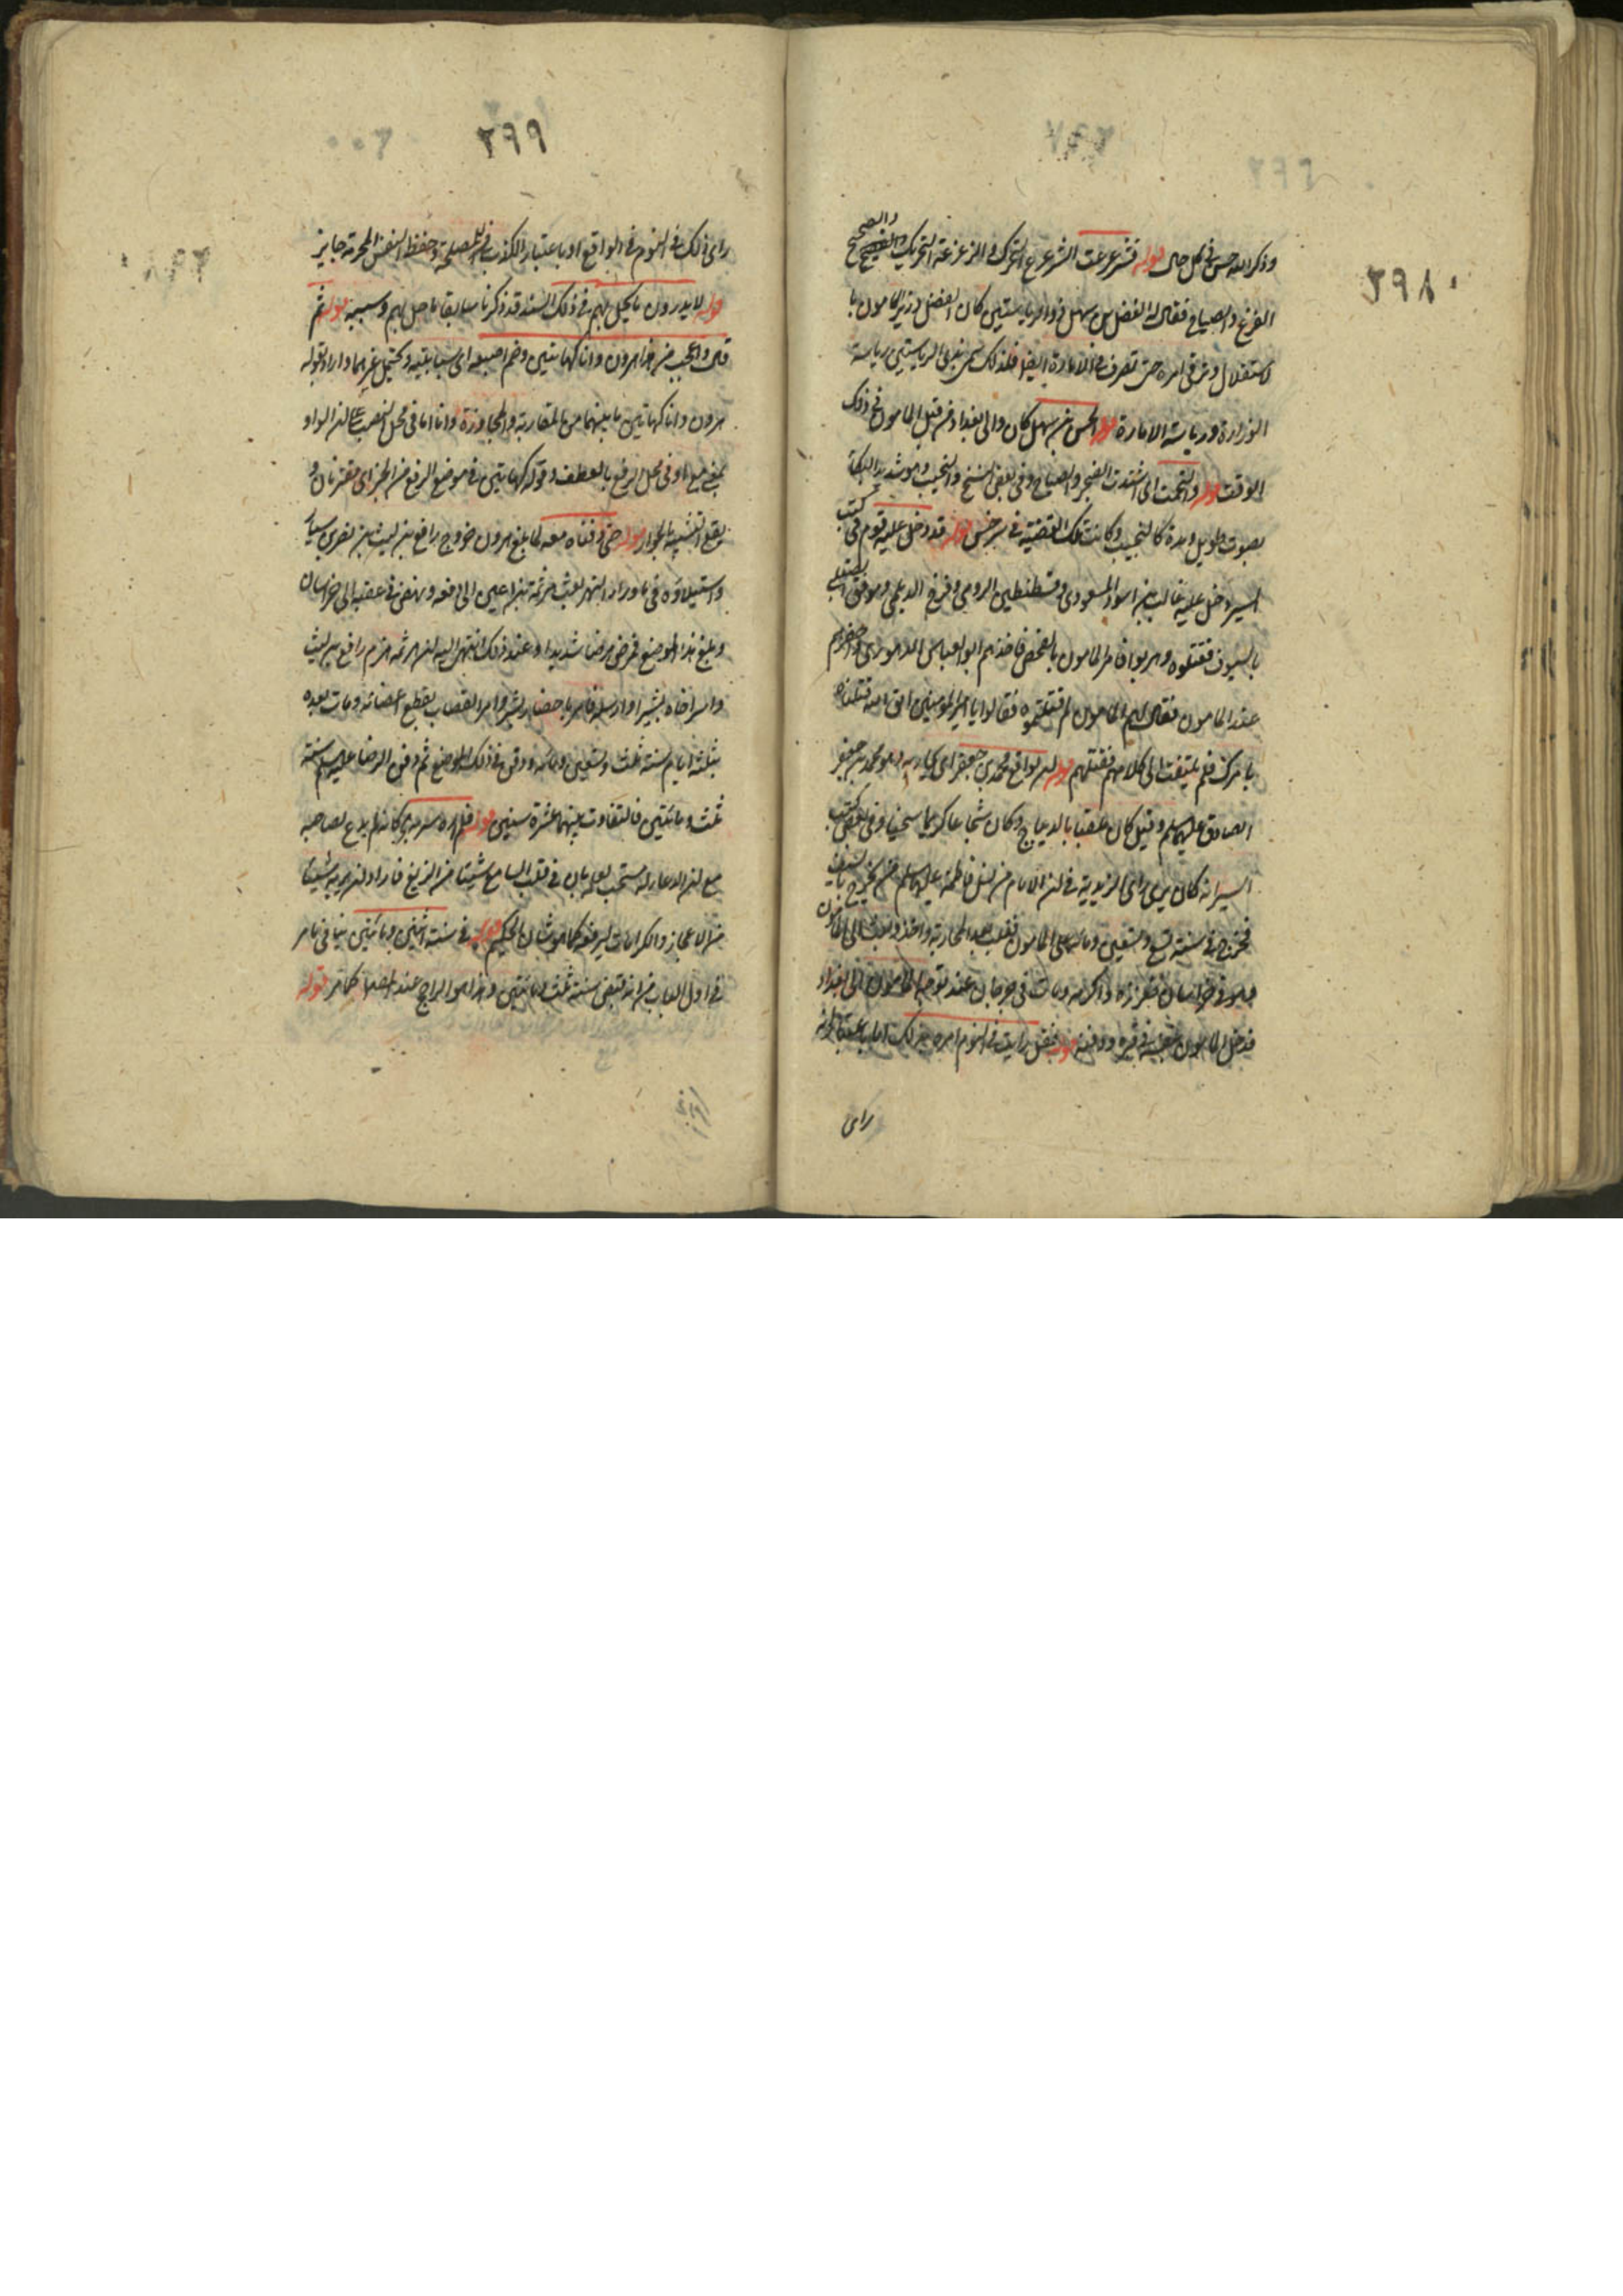 ٢٩٨
وذكر الله حسن في كل حال قوله فتزعزعت التزعزع التحرك والزعزعة التحريك والصحيح
الفزع والصياح فقال له الفضل بن سهل ذو الرياستين كان الفضل وزير المامون با
لاستقلال وترقى امره حتى تصرف في الامارة ايضا فلذلك سمى بذى الرياستين رياسة
الوزارة ورياسة الامارة قوله الحسن بن سهل كان والى بغداد من قبل المامون في ذلك
الوقت قوله والتحمت اى اشتدت الضجر والصياح وفي بعض النسخ والنحيب وهو شدة البكاء
بصوت طويل ومده كالنحيب وكانت تلك القضية في سرخس قوله قد دخل عليه قوم في كتب
السير دخل عليه غالب بن اسود المسعودى وقسطنطين الرومى وفرخ الديلمى وموفق الصقلبى
بالسيوف فقتلوه وهربوا فامر المامون بالفحص فاخذهم ابو العباس الدينورى واحضرهم
عند المامون فقال لهم المامون لم قتلتموه فقالوا يا امير المؤمنين اتق الله قتلناه
بامرك فلم يلتفت الى كلامهم فقتلهم قوله ان يواقع محمد بن جعفر اى يحاربه وهو محمد بن جعفر
الصادق عليهما السلم وقيل كان ملقبا بالديباج وكان شجاعا كريما سخيا وفي بعض كتب
السير انه كان يرى راى الزيدية في ان الامام من نسل فاطمة عليها السلم من يخرج بالسيف
فخرج في سنة تسع وتسعين ومائة على المامون فغلب بعد المحاربة واخذ وبعث الى المامون
وهو في خراسان فعززه واكرمه ومات في جرجان عند توجه المامون الى بغداد
فدخل المامون بنفسه في قبره ودفنه قوله فقل رايت في النوم امره بذلك اما باعتبار انه
راى
٢٩٩
راى ذلك في النوم في الواقع او باعتبار ان الكذب في المصلحة وحفظ النفس المحرمة جايز
قوله لا يدرون ما يحل بهم في ذلك السنة قد ذكرنا سابقا ما حل بهم وسببه قوله ثم
قال واعجب من هذا هرون وانا كهاتين وضم اصبعيه اى سبابتيه ويحتمل غيرهما واراد بقوله
هرون وانا كهاتين ما بينهما من المقاربة والمجاورة وانا اما في محل النصب على ان الواو
بمعنى مع او في محل الرفع بالعطف وقوله كهاتين في موضع الرفع من الخبر اى مقترنان و
يقع التشبيه بالجوار قوله حتى دفناه معه لما بلغ هرون خروج رافع بن ليث بن نصر بن سيار
واستيلاؤه في ماوراء النهر بعث هرثمة بن اعين الى دفعه ونهض في عقبه الى خراسان
وبلغ هذا الموضع فمرض مرضا شديدا وعند ذلك انتهى اليه ان هرثمة هزم رافع بن ليث
واسر اخاه بشيرا وارسله فامر باحضار بشير وامر القصاب بقطع اعضائه ومات بعده
بثلثة ايام سنة ثلث وتسعين ومائة ودفن في ذلك الموضع ثم دفن الرضا عليه السلم سنة
ثلث ومائتين فالتفاوت بينهما عشرة سنين قوله فلم اره سر به كانه لم يدع لصاحبه
مع ان الدعاء له مستحب لعلمه بان في قلب السامع شيئا من الزيغ فاراد ان يريه شيئا
من الاعجاز والكرامات ليرفعه كما هو شان الحكيم قوله في سنة اثنتين ومائتين ينافى ما مر
في اول الباب من انه قبض سنة ثلث ومائتين وهذا هو الراجح عند المصنف كما مر قوله